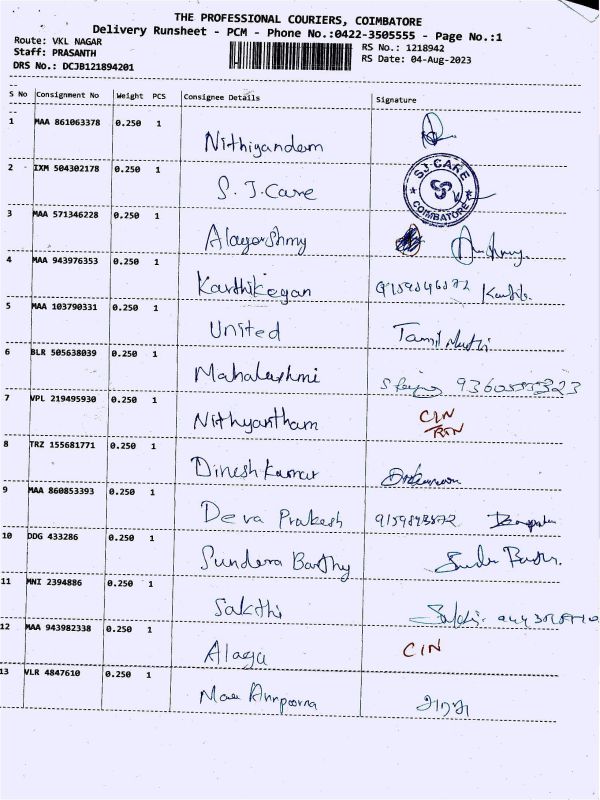 THE PROFESSIONAL COURIERS, COIMBATORE
Delivery Runsheet - PCM - Phone No.:0422-3505555 - Page No.:1
Route: VKL NAGAR RS No.: 1218942
Staff: PRASANTH RS Date: 04-Aug-2023
DRS No.: DCJB121894201
S No Consignment No Weight PCS Consignee Details Signature
1 MAA 861063378 0.250 1
Nithiyandam
2 IXM 504302178 0.250 1
S.J.Care
S.J.CARE
COIMBATORE
3 MAA 571346228 0.250 1
4 MAA 943976353 0.250 1
Karthikegan
5 MAA 103790331 0.250 1
United
6 BLR 505638039 0.250 1
Mahalakshmi
7 VPL 219495930 0.250 1
Nithyantham CIN
RTN
8 TRZ 155681771 0.250 1
Dinesh Kumar
9 MAA 860853393 0.250 1
Deva Prakesh
10 DDG 433286 0.250 1
Sundera Barthy
11 MNI 2394886 0.250 1
Sakthi
12 MAA 943982338 0.250 1
Alagu CIN
13 VLR 4847610 0.250 1